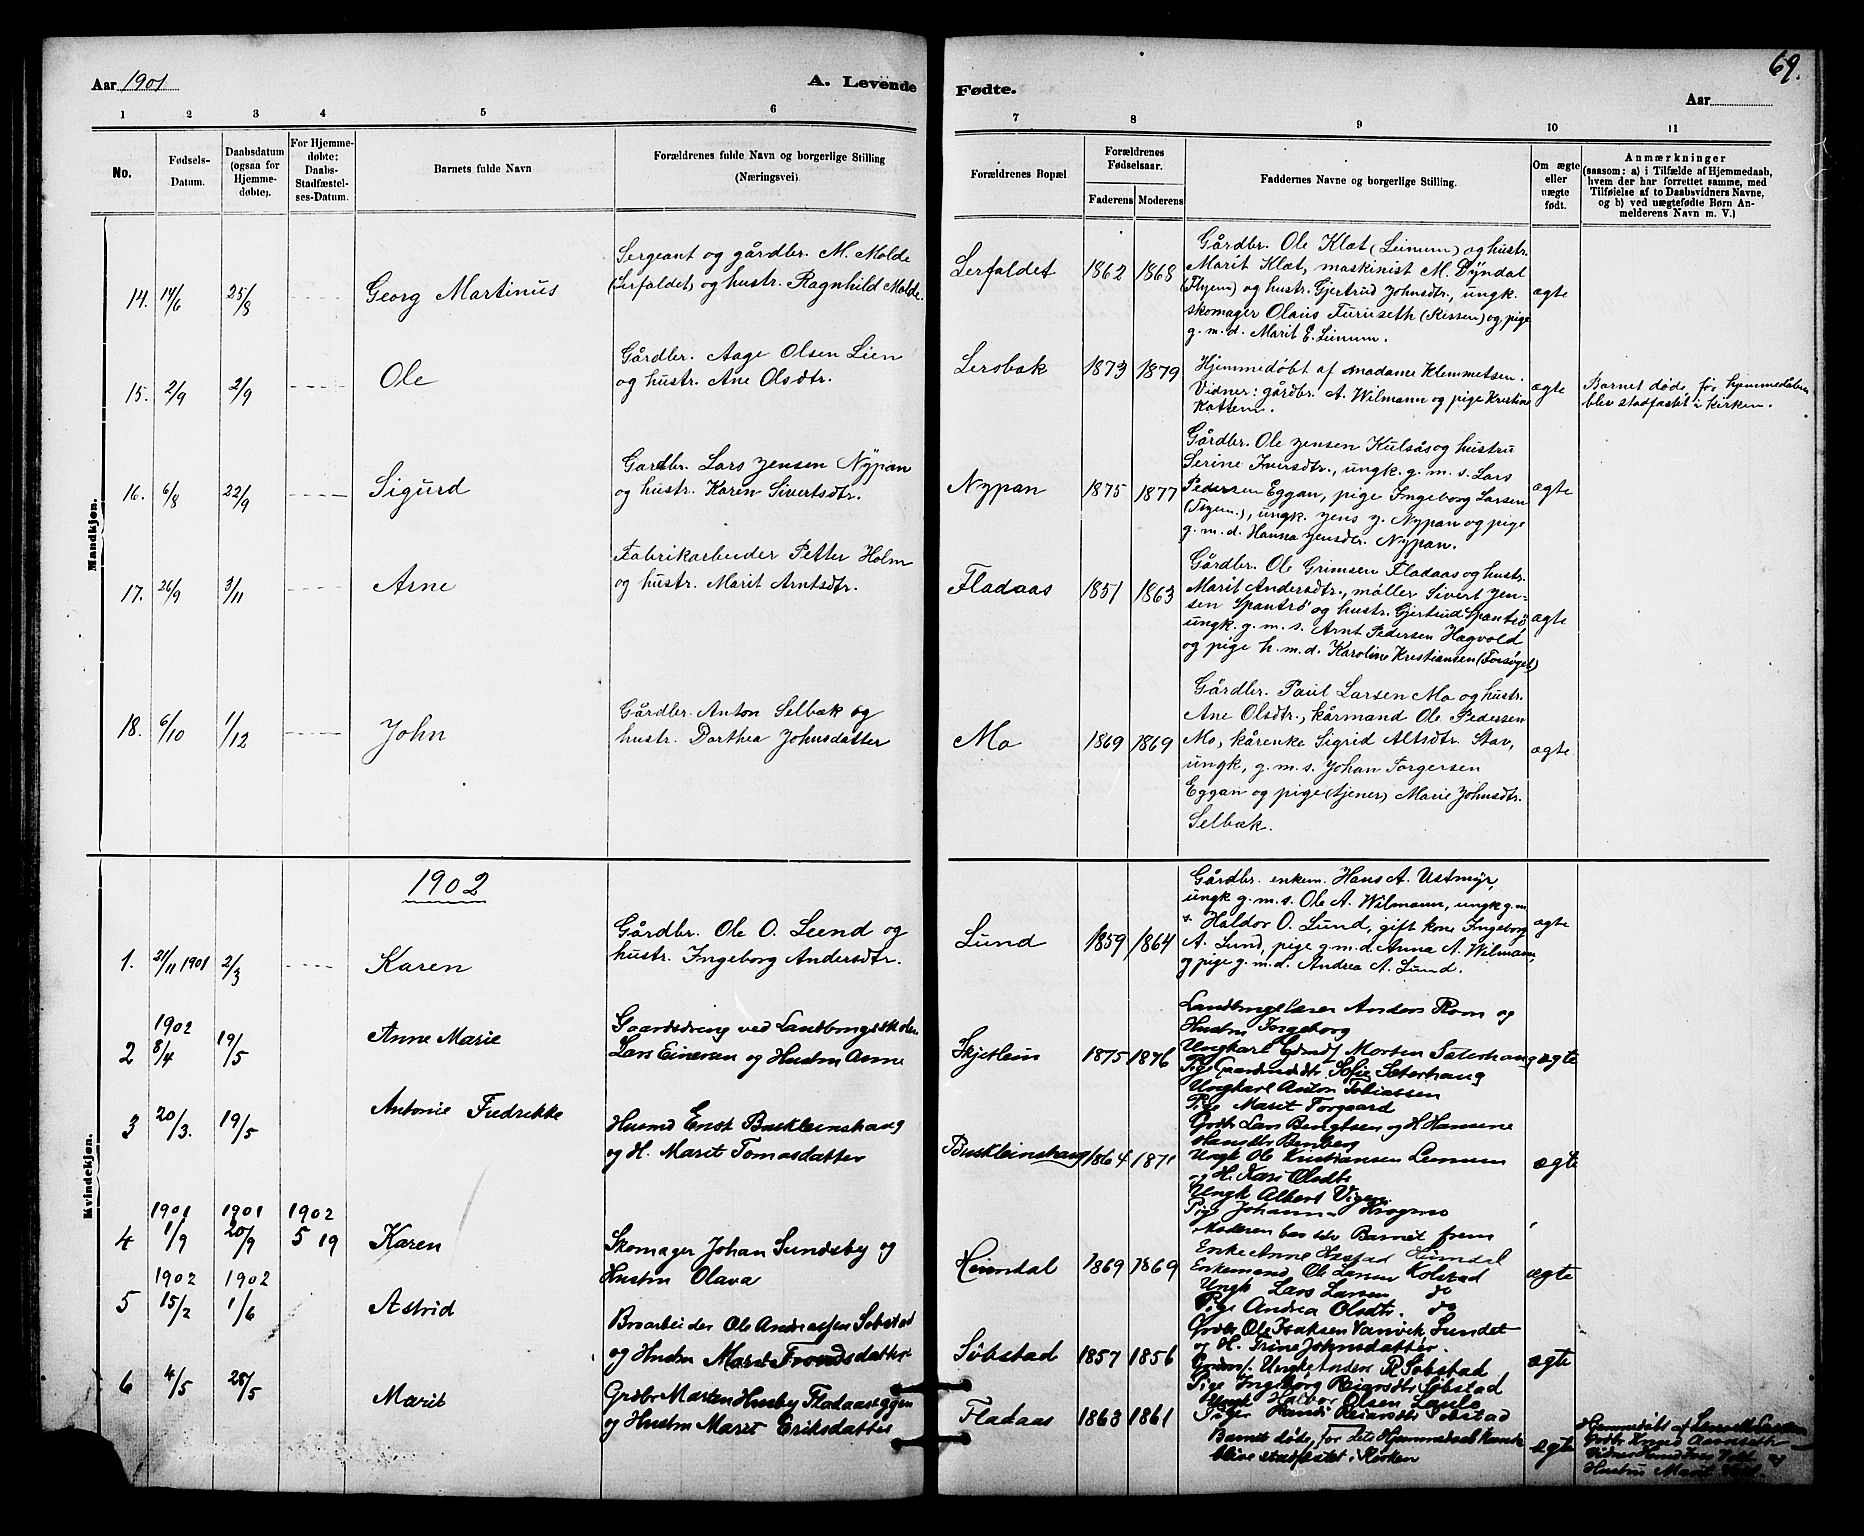 Aar 1901
A. Levende
Fødte.
69.
Aar
1 2 3 4 5 6 7 8 9 10 11
No.
Fødsels-
Datum.
Daabsdatum
(ogsaa for
Hjemme-
døbte).
For Hjemme-
døbte:
Daabs-
Stadfæstel-
ses-Datum.
Barnets fulde Navn
Forældrenes fulde Navn og borgerlige Stilling
(Næringsvei).
Forældrenes Bopæl
Forældrenes
Fødselsaar.
Faderens Moderens
Faddernes Navne og borgerlige Stilling.
Om ægte
eller
uægte
født.
Anmærkninger
(saasom: a) i Tilfælde af Hjemmedaab,
hvem der har forrettet samme, med
Tilføielse af to Daabsvidners Navne,
og b) ved uægtefødte Børn An-
melderens Navn m. V.)
Mandkjøn.
14. 14/6 25/8 Georg Martinus
Sergeant og gårdbr. M. Molde
(Lerfaldet) og hustr. Ragnhild Molde.
Lerfaldet 1862 1868
Gårdbr. Ole Klæt (Leinum) og hustr.
Marit Klæt, maskinist M. Dyndal
(Flyem) og hustr. Gjertrud Johnsdtr., ungk.
skomager Olaus Furuseth (Rissen) og pige
g.m.d. Marit E. Leinum.
ægte
15. 2/9 2/9 Ole
Gårdbr. Aage Olsen Lien
og hustr. Ane Olsdtr.
Lersbak 1873 1879
Hjemmedøbt af madame Klemmetsen.
Vidner: gårdbr. A. Wilmann og pige Kristine
Kattem.
ægte
Barnet døde, før hjemmedåben
blev stadfæstet i kirken.
16. 6/8 22/9 Sigurd
Gardbr. Lars Jensen Nypan
og hustr. Karen Sivertsdtr.
Nypan 1875 1877
Gårdbr. Ole Jensen Kulsås og hustru
Serine Iversdtr., ungk. g.m.s. Lars
Pedersen Eggan, pige Ingeborg Larsen
ungk. Jens J. Nypan og pige
g.m.d. Hanna Jensdtr. Nypan.
ægte
17. 26/9 3/11 Arne
Fabrikarbeider Petter Holm
og hustr. Marit Arntsdtr.
Fladaas 1851 1863
Gårdbr. Ole Grimsen Fladaas og hustr.
Marit Andersdtr., møller Sivert Jen-
sen Spantrö og hustr. Gjertrud Spantrö
ungk. g.m.s. Arnt Pedersen Hagvold
og pige h.m.d. Karoline Kristiansen (Forsøget)
ægte
18. 6/10 1/12 John
Gårdbr. Anton Selbæk og
hustr. Dorthea Johnsdatter
Mo 1869 1869
Gårdbr. Paul Larsen Mo og hustr.
Ane Olsdtr., kårmand Ole Pedersen
Mo, kårenke Sigrid Altsdtr. Stav,
ungk, g.m.s. Johan Torgersen
Eggan og pige (tjener) Marie Johnsdtr.
Selbæk.
ægte
Kvindekjøn.
1902
1. 21/11 1901 2/3 Karen
Gårdbr. Ole O. Lund og
hustr. Ingeborg Andersdtr.
Lund 1859 1864
Gårdbr. enkem. Hans A. Ustmyr,
ungk g.m.s. Ole A. Wilmann, ungk g.m.
s. Haldor O. Lund, gift kone Ingeborg
A. Lund, pige g.m.d. Anna A. Wilmann,
og pige g.m.d. Andrea A. Lund.
ægte
2 1902 8/4 19/5 Anne Marie
Gaardsdreng ved Landbrugsskolen
Lars Einersen og Hustru Anne
Skjetlein 1875 1876
Landbrugslærer Anders Rom og
Hustru Ingeborg
Ungkarl Gdmds Morten Sæterhaug
Pige Sofie Sæterhaug
Ungkarl Anton Tobiassen
Pige Marit Torgaard
ægte
3 20/3. 19/5 Antonie Fredrikke
Husmd Enst Buskleinshaug
og H. Marit Tomasdatter
Buskleinshaug 1864 1871
Grdbr Lars Bengtsen og H Hansine
Hansdtr Benberg
Ungk Ole Kristiansen Leinum
og H. Kari Olsdtr
Ungk Albert Vigen
Pige Johanna Krogmo
ægte
4 1901 1/9 1901 20/9 1902 5 19 Karen
Skomager Johan Sundsby og
Hustru Olava
Heimdal 1869 1869
Moderen bar selv Barnet frem
Enke Anne Hæstad Heimdal
Enkemand Ole Larsen Kolstad
Ungk Lars Larsen do
Pige Andrea Olsdtr. do
ægte
5 1902 15/2 1902 1/6 Astrid
Broarbeider Ole Andreassen Søbstad
og Hustru Marit Trondsdatter
Søbstad 1857 1856
Grdbr Ole Isaksen Vanvik Sundet
og H. Trine Johnsdatter.
Grdms. Ungk Anders R Søbstad
Pige Ingeborg Reiarsdtr Søbstad
Ungk Halvor Olsen Laulo
Pige Randi Reiarsdtr Søbstad
ægte
6 4/5 25/5 Marit
Grdbr Marten Husby Fladaaseggen
og Hustru Marit Eriksdatter
Fladaas 1863 1861
Barnet døde, før dets Hjemmedaab kunde
blive stadfæstet i Kirken
ægte
Hjemmedøbt af
Hustru Marit